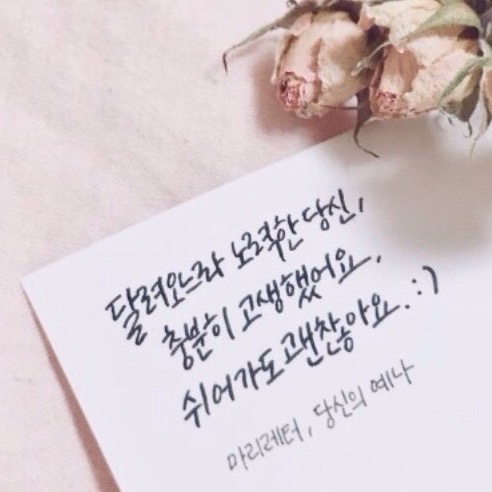 달려오느라 노력한 당신,
충분히 고생했어요.
쉬어가도 괜찮아요. :)
마리레터, 당신의 예나